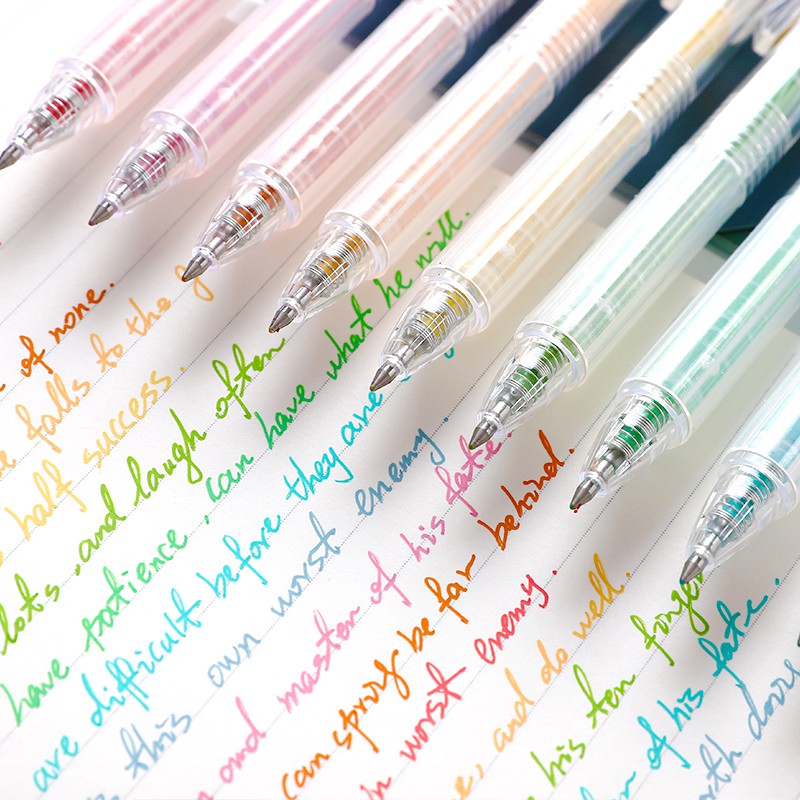 of none.
falls to the
half success.
lots, and laugh often
have patience, can have what he will.
are difficult before they are
this own worst enemy.
and master of his fate.
can spring be far behind.
worst enemy.
, and do well.
his ten finger
of his fate.